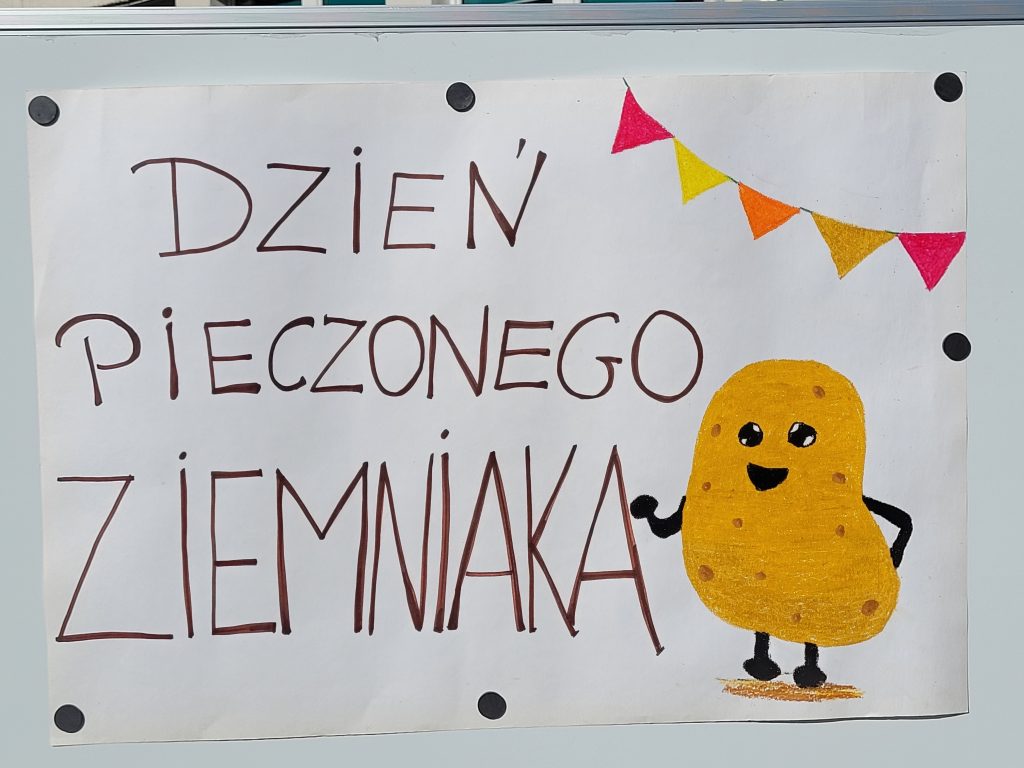 DZiEŃ
PiECZONEGO
ZiEMNiAKA